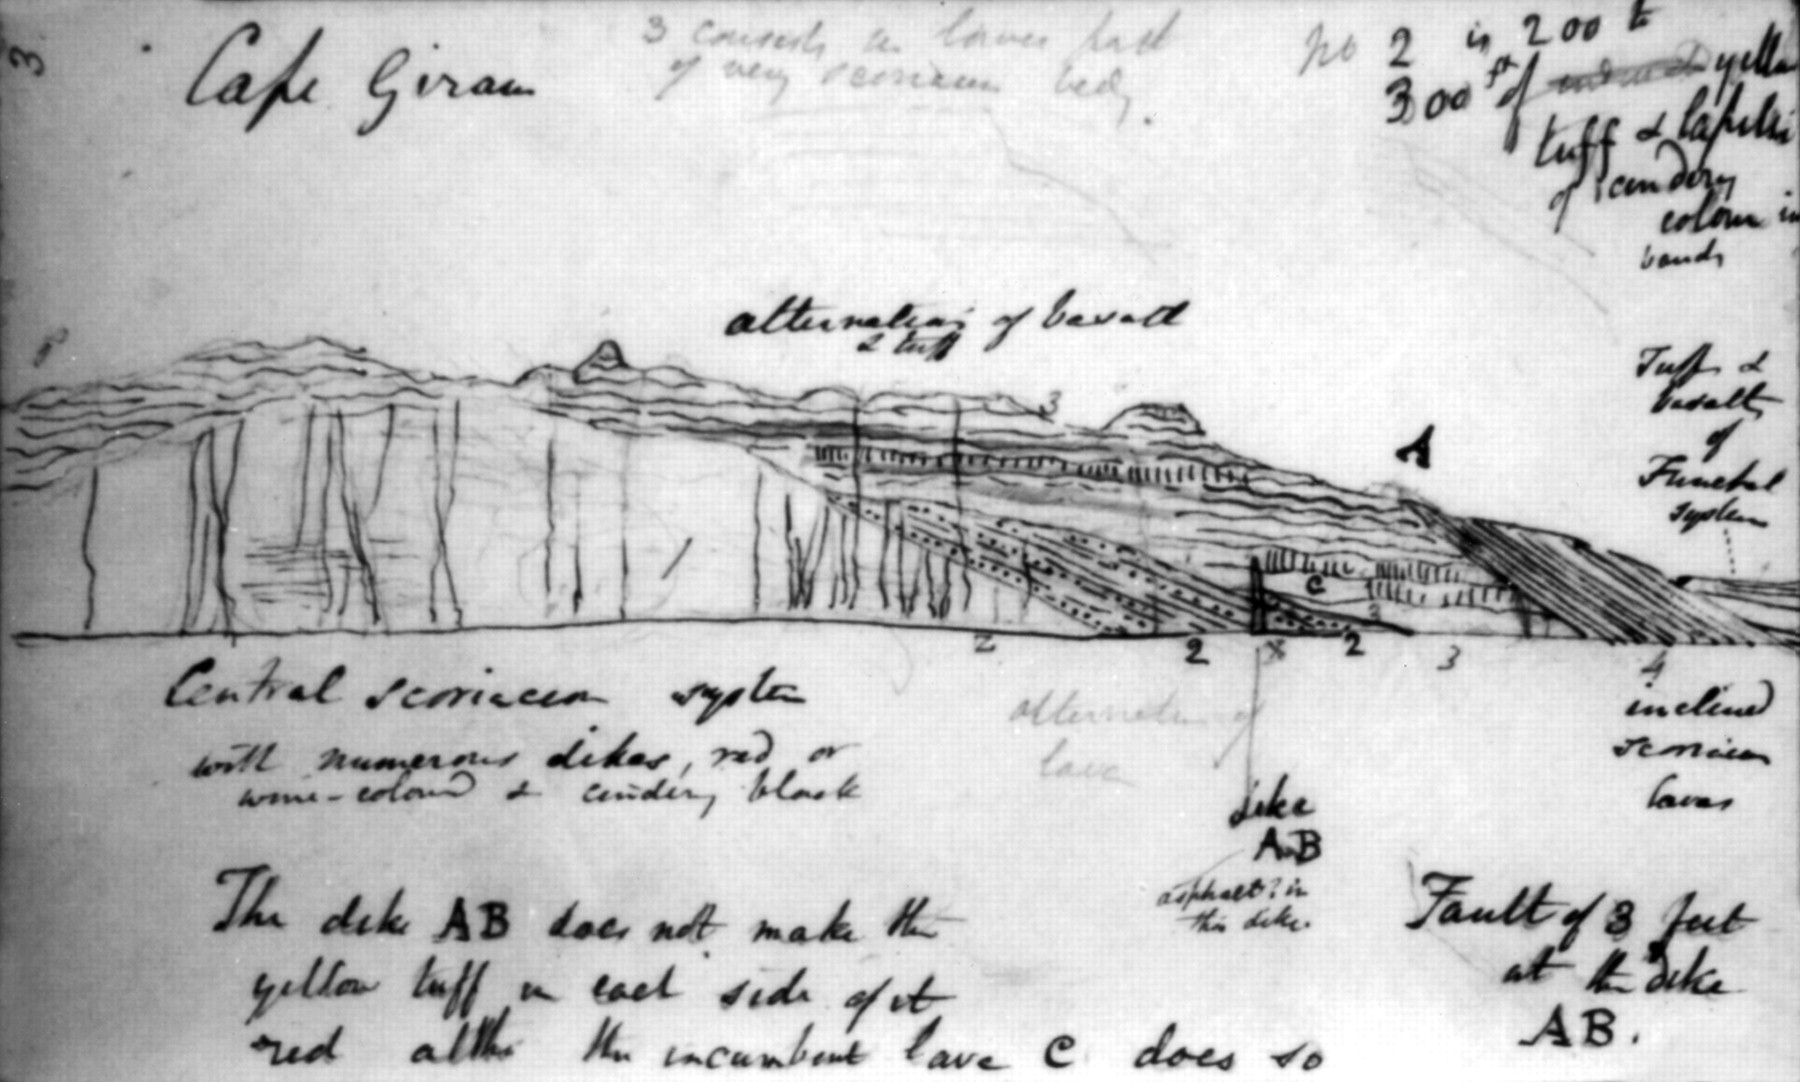 3.
Cape Giram
3 consists in lower part
of very scoriaceous beds
No 2 is 200 to
300 ft of yellow
tuff & lapilli
of cindery
colour in
bands
alternations of basalt
& tuff
3
A
Tuffs &
basalts
of
Funchal
system
C
3
2
2
X
2
3
4
Central scoriaceous system
with numerous dikes, red or
wine-coloured & cindery black
alternation of
lava
dike
AB
asphalt? in
this dike.
inclined
scoriaceous
lavas
The dike AB does not make the
yellow tuff on each side of it
red altho the incumbent lava C does so
Fault of 3 feet
at the dike
AB.